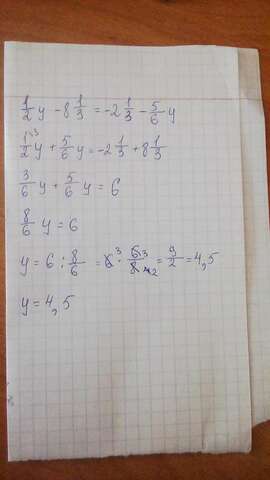 1/2 y - 8 1/3 = -2 1/3 - 5/6 y
1/2 ^3 y + 5/6 y = -2 1/3 + 8 1/3
3/6 y + 5/6 y = 6
8/6 y = 6
y = 6 : 8/6 = 6 ^3 · 6 3/8 4 2 = 9/2 = 4,5
y = 4,5